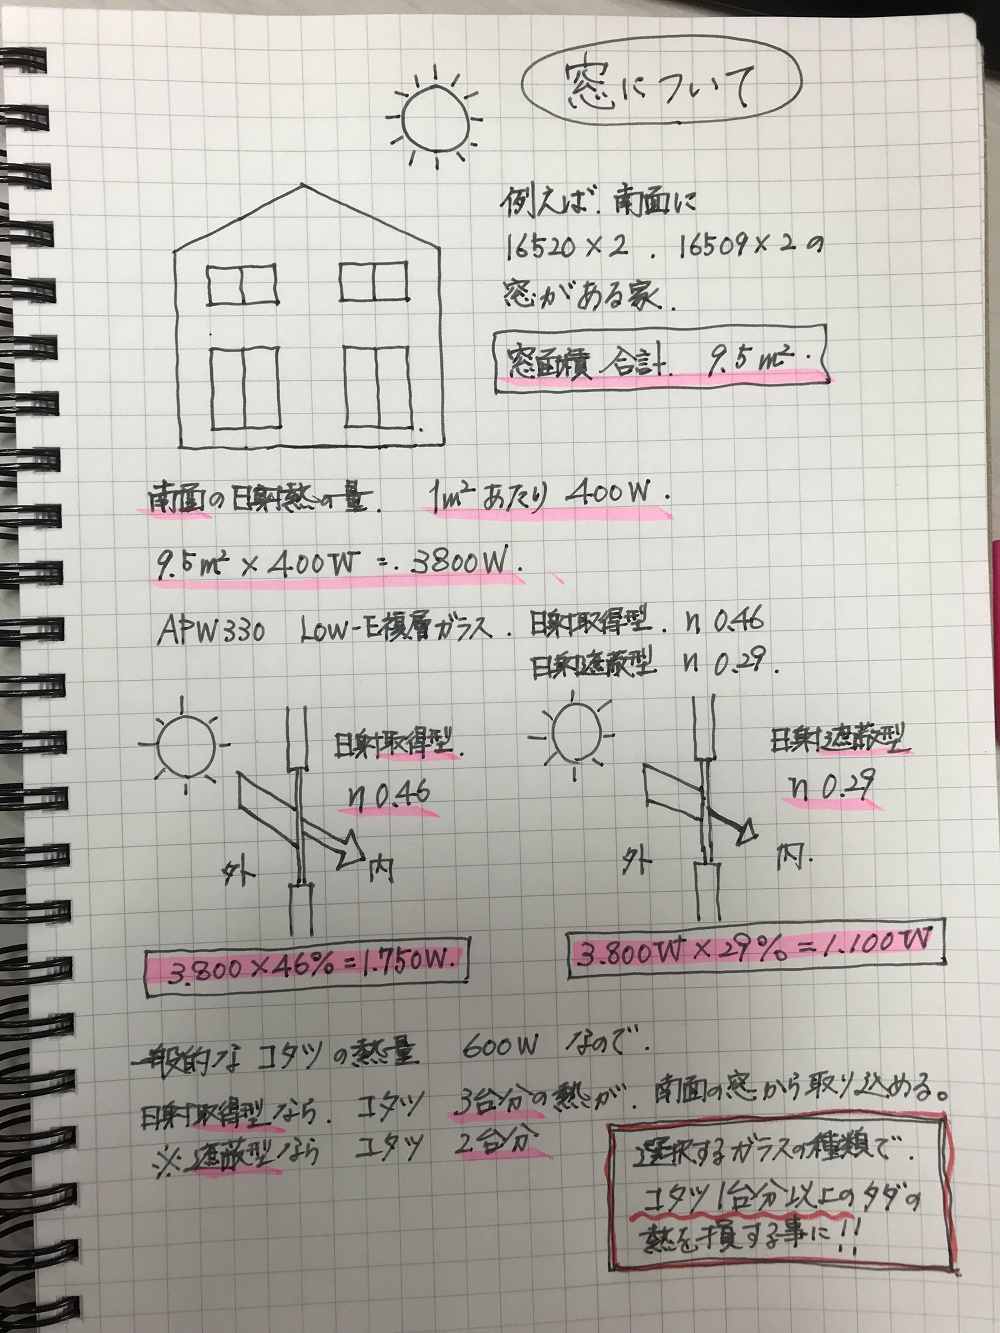 窓について
例えば、南面に
16520×2、16509×2の
窓がある家、
窓面積 合計、9.5m²．
南面の日射熱の量、1m²あたり 400W．
9.5m²×400W＝．3800W．
APW330 LOW-E複層ガラス．日射取得型．n 0.46
日射遮蔽型 n 0.29．
日射取得型．
n 0.46
外
内
3.800×46%＝1.750W．
日射遮蔽型
n 0.29
外
内．
3.800W×29%＝1.100W
一般的な コタツの熱量 600W なので．
日射取得型なら、コタツ 3台分の熱が、南面の窓から取り込める。
※遮蔽型なら コタツ 2台分
選択するガラスの種類で、
コタツ1台分以上のタダの
熱を損する事に!!